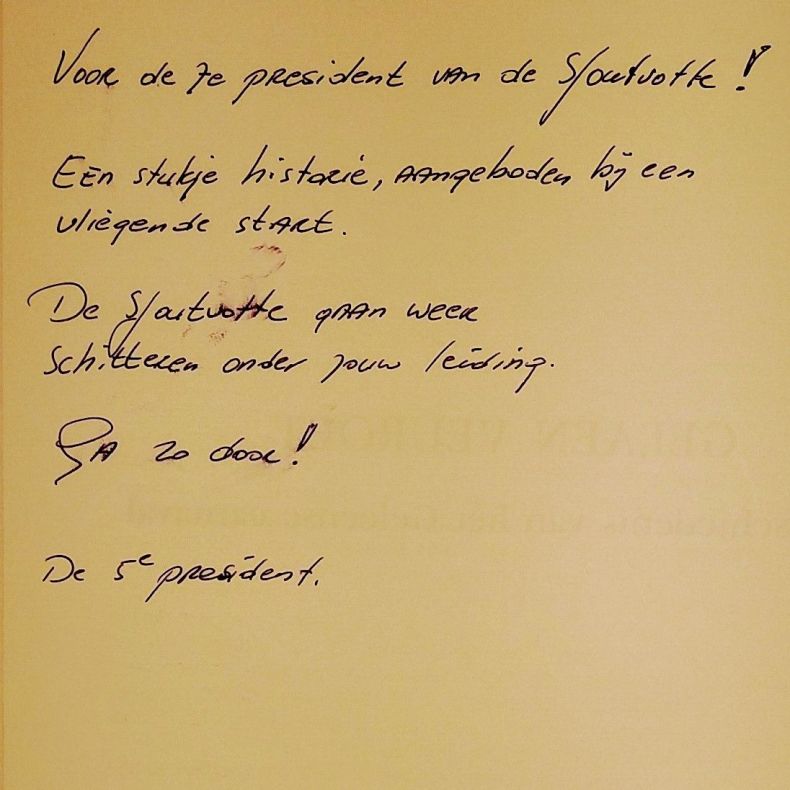 Voor de 7e president van de Sjoutvotte!
Eén stukje historie, aangeboden bij een
vliegende start.
De Sjoutvotte gaan weer
schitteren onder jouw leiding.
Ga zo door!
De 5e president.